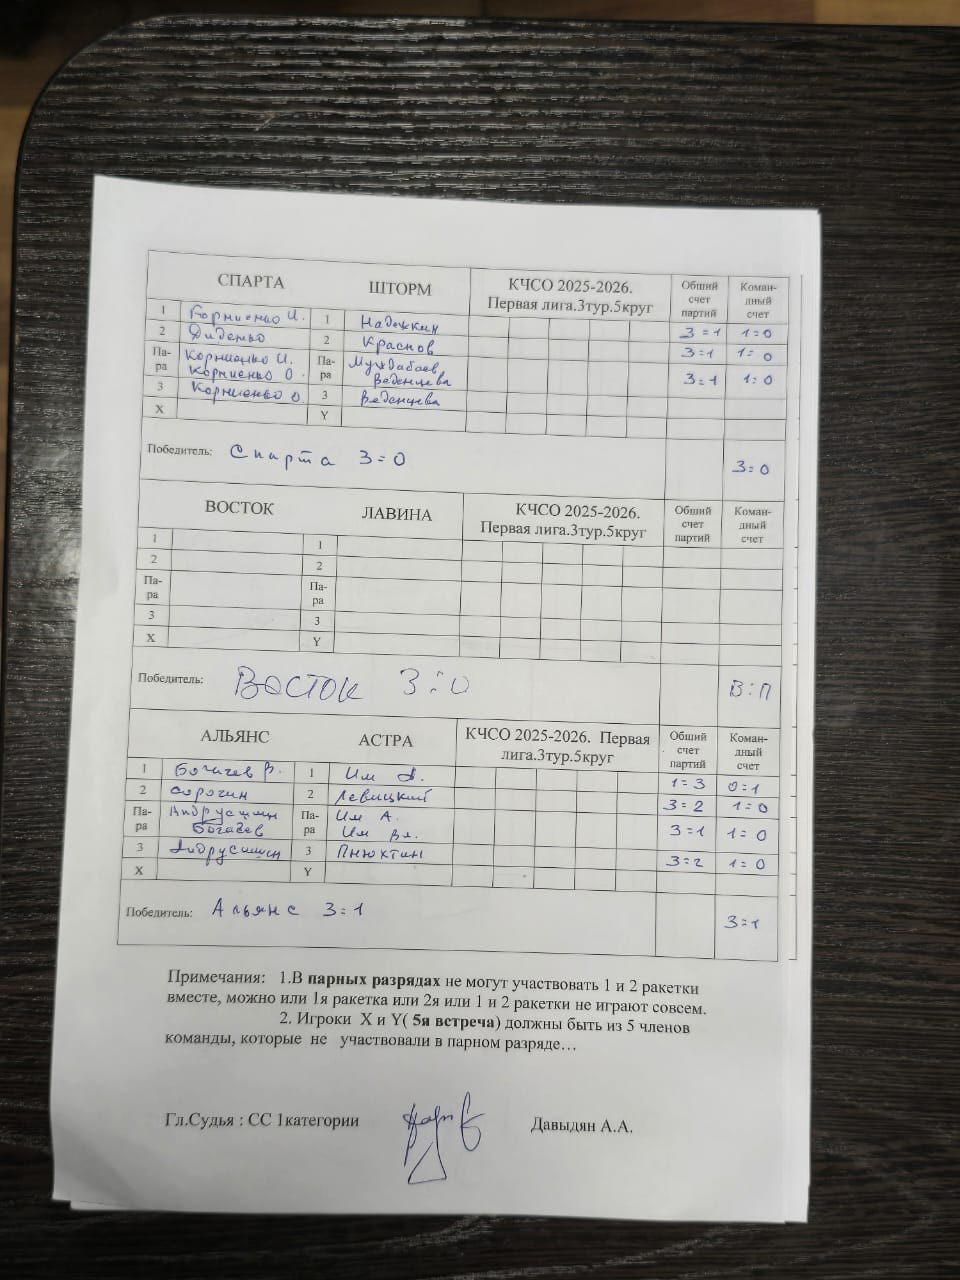 СПАРТА ШТОРМ КЧСО 2025-2026. Первая лига.3тур.5круг Общий счет партий Коман-дный счет
1 Корниенко И. 1 Надежкин 3=1 1=0
2 Диденко 2 Краснов 3=1 1=0
Па-ра Корниенко И. Па-ра Муждабаев 3=1 1:0
Корниенко О. Веденцева
3 Корниенко О. 3 Веденцева
X Y
Победитель: Спарта 3=0 3=0
ВОСТОК ЛАВИНА КЧСО 2025-2026. Первая лига.3тур.5круг Общий счет партий Коман-дный счет
1 1
2 2
Па-ра Па-ра
3 3
X Y
Победитель: ВОСТОК 3:0 В:П
АЛЬЯНС АСТРА КЧСО 2025-2026. Первая лига.3тур.5круг Общий счет партий Коман-дный счет
1 Богачев В. 1 Им А. 1=3 0=1
2 Сорочин 2 Левицкий 3=2 1=0
Па-ра Андрусишин Па-ра Им А. 3=1 1=0
Богачев Им Вл.
3 Андрусишин 3 Пнюхтин 3=2 1=0
X Y
Победитель: Альянс 3=1 3=1
Примечания: 1.В парных разрядах не могут участвовать 1 и 2 ракетки
вместе, можно или 1я ракетка или 2я или 1 и 2 ракетки не играют совсем.
2. Игроки X и Y( 5я встреча) должны быть из 5 членов
команды, которые не участвовали в парном разряде…
Гл.Судья : СС 1категории Давыдян А.А.